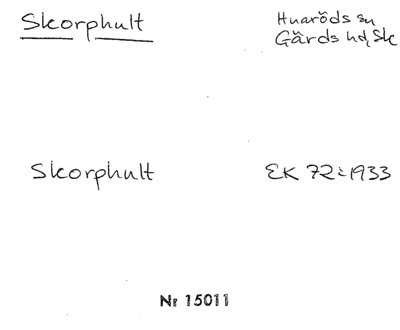 Skorphult
Huaröds sn
Gärds hd, Sk
Skorphult
EK 72:1933
Nr 15011